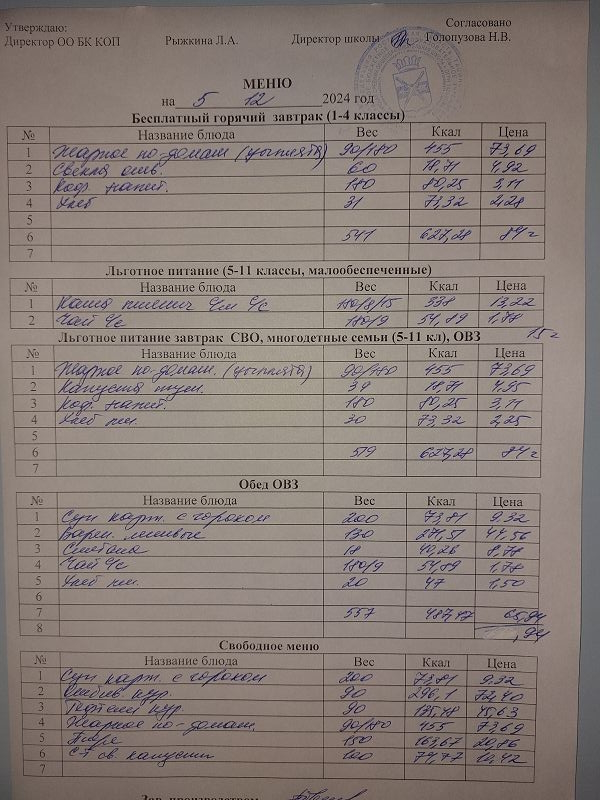 Утверждаю: Согласовано
Директор ОО БК КОП Рыжкина Л.А. Директор школы Голопузова Н.В.
МЕНЮ
на 5 12 2024 год
Бесплатный горячий завтрак (1-4 классы)
№ Название блюда Вес Ккал Цена
1 Жаркое по-домаш (цыплята) 90/180 455 73,69
2 Свекла отв. 60 18,71 4,92
3 Коф. напит. 180 80,25 3,11
4 Хлеб 31 73,32 2,28
5
6 541 627,28 84 г
7
Льготное питание (5-11 классы, малообеспеченные)
№ Название блюда Вес Ккал Цена
1 Каша пшенич ч/м ч/с 180/8/15 338 13,22
2 Чай ч/с 180/9 54,89 1,78
Льготное питание завтрак СВО, многодетные семьи (5-11 кл), ОВЗ 15 г
№ Название блюда Вес Ккал Цена
1 Жаркое по-домаш. (цыплята) 90/180 455 73,69
2 Капуста туш. 39 18,71 4,95
3 Коф. напит. 180 80,25 3,11
4 Хлеб пш. 30 73,32 2,25
5
6 519 627,28 84 г
7
Обед ОВЗ
№ Название блюда Вес Ккал Цена
1 Суп карт. с горохом 200 73,81 9,32
2 Варен. ленивые 130 271,51 44,56
3 Сметана 18 40,26 8,78
4 Чай ч/с 180/9 54,89 1,78
5 Хлеб пш. 20 47 1,50
6
7 557 487,47 65,94
8 ,94
Свободное меню
№ Название блюда Вес Ккал Цена
1 Суп карт. с горохом 200 73,81 9,32
2 кур. 90 296,1 72,40
3 Тефтели кур. 90 135,48 45,63
4 Жаркое по-домаш. 90/180 455 73,69
5 Пюре 150 163,67 20,86
6 С-т св. капусты 100 79,77 10,42
7
Зав. производством